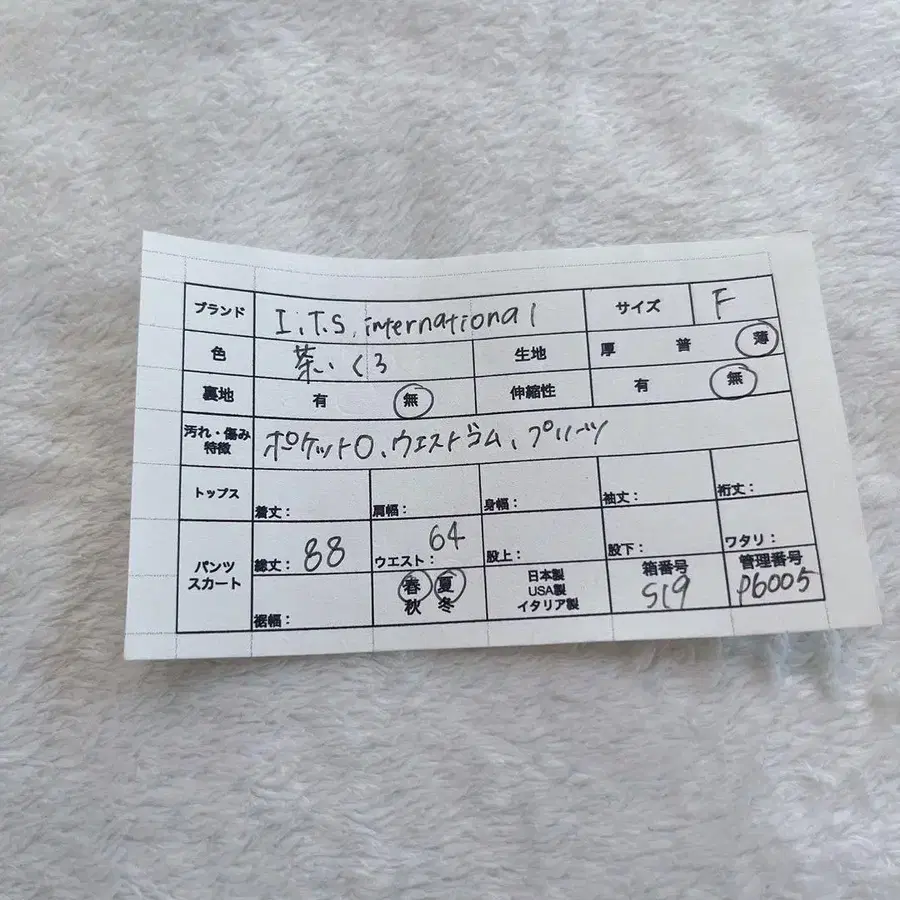 ブランド I.T.S. international サイズ F
色 茶い くろ 生地 厚 普 薄
裏地 有 無 伸縮性 有 無
汚れ・傷み
特徴 ポケット〇、ウエストゴム、プリーツ
トップス 着丈： 肩幅： 身幅： 袖丈： 裄丈：
パンツ
スカート 総丈：88 ウエスト：64 股上： 股下： ワタリ：
裾幅： 春 夏
秋 冬
日本製
USA製
イタリア製
箱番号
S19
管理番号
P6005